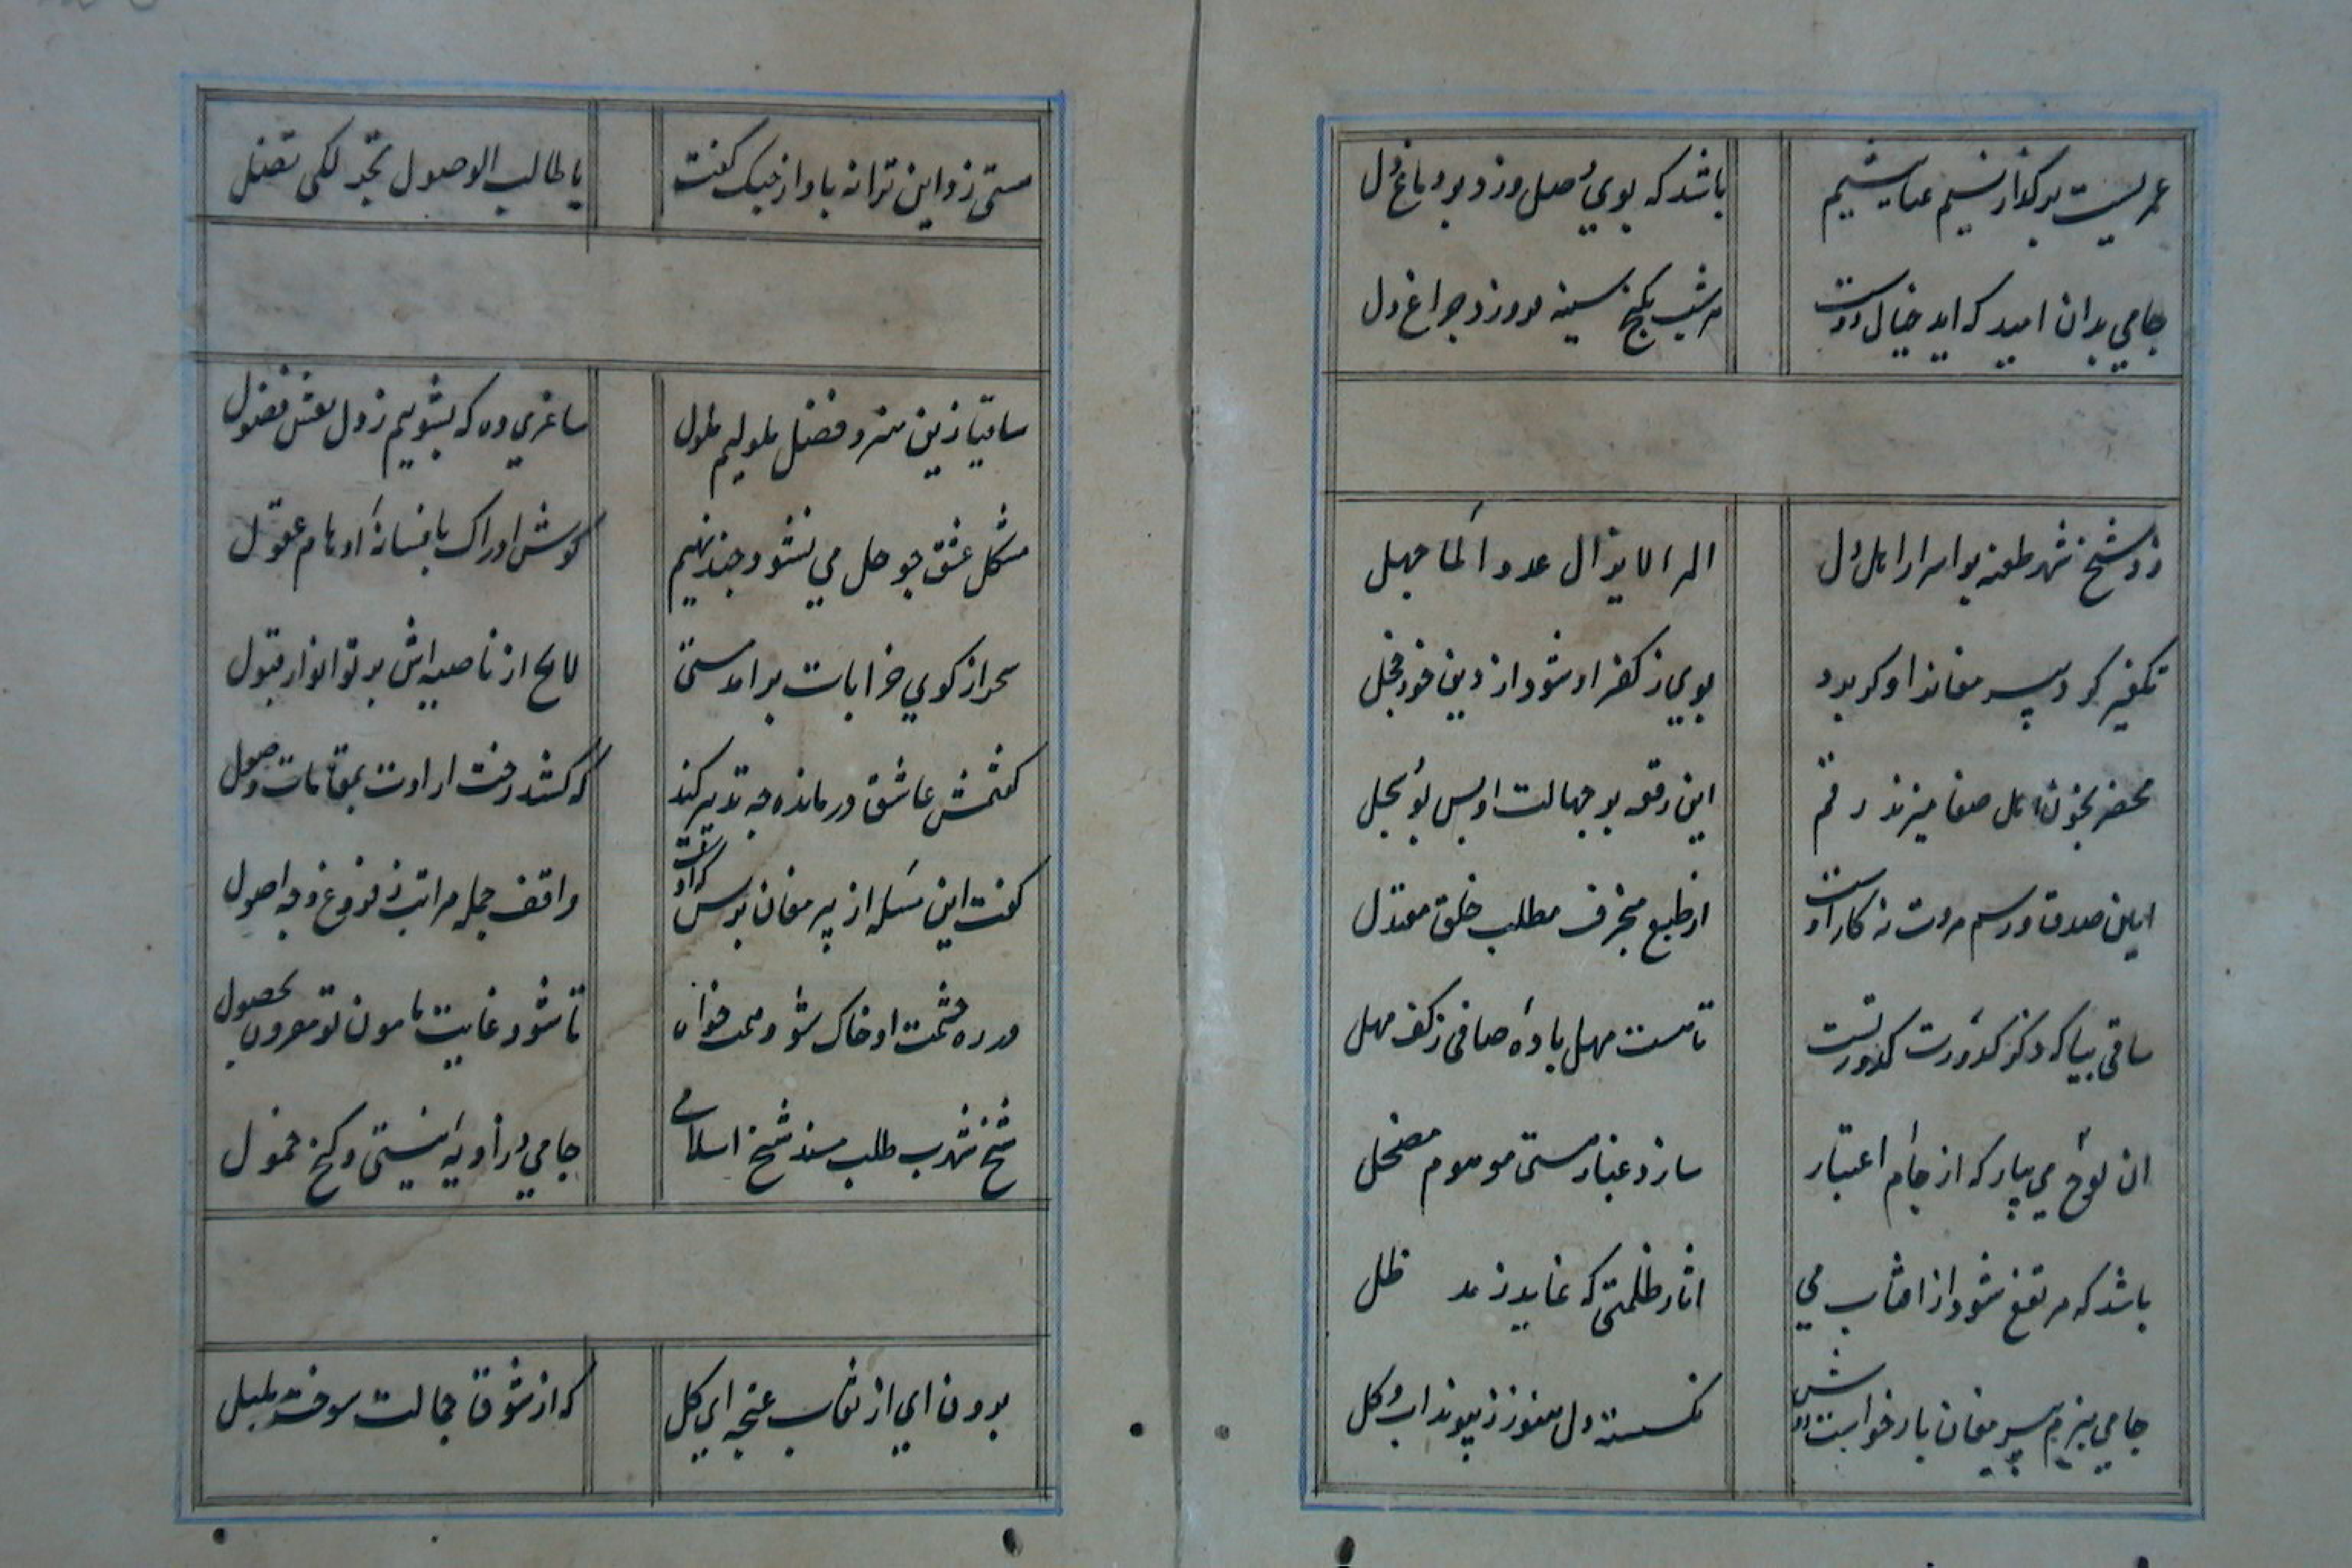 عمریست بر گذار نسیم عنایتیم
باشد که بوی وصل وزد بر دماغ دل
جامی بدان امید که اید خیال دوست
هر شب بکنج سینه فروزد چراغ دل
زد شیخ شهر طعنه بر اسرار اهل دل
المرء لا یزال عدوا لما جهل
تکفیر کرد پیر مغانرا و کر برد
بویی ز کفر او شود از دین خود خجل
محضر بخون اهل صفا میزند رقم
این رقعه بر جهالت او بس بود سجل
ایین صدق و رسم مروت نه کار اوست
از طبع منحرف مطلب خلق معتدل
ساقی بیا که ذکر کدورت کدورتست
تا مست مهل باده صافی ز کف مهل
ان لوح می بیار که از جام اعتبار
سازد غبار هستی موهوم مضمحل
باشد که مرتفع شود از افتاب می
اثار ظلمتی که نماید ز مد ظل
جامی ببزم پیر مغان بار خواست
نکسسته دل هنوز ز پیوند اب و کل
مستی زد این ترانه باواز چنک کفت
یا طالب الوصول تجرد لکی تصل
ساقیا زین هنر و فضل ملولیم ملول
ساغری ده که بشوییم ز دل نقش فضول
مشکل عشق چو حل می نشود چند نهیم
کوش ادراک بافسانه اوهام عقول
سحر از کوی خرابات بر امد مستی
لایح از ناصیه اش پرتو انوار قبول
کفتمش عاشق درمانده چه تدبیر کند
که کشد رخت ارادت بمقامات وصول
کفت این مسله از پیر مغان پرس که اوست
واقف جمله مراتب چه فروع و چه اصول
در ره خدمت او خاک شو و همت خواه
تا شود غایت مامون تو مقرون بحصول
شیخ شهرت طلب مسند شیخ اسلامی
جامی و زاویه نیستی و کنج خمول
برون ای از نقاب غنچه ای کل
که از شوق جمالت سوخت بلبل